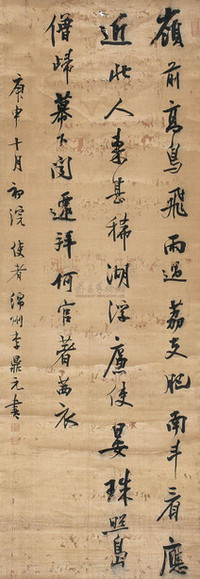 嶺前高鳥飛雨過荔支肥南斗看應
近北人来甚稀湖浮廉使宴珠照島
僧歸幕下聞遷拜何官著茜衣
庚申十月初浣使者綿州李鼎元書